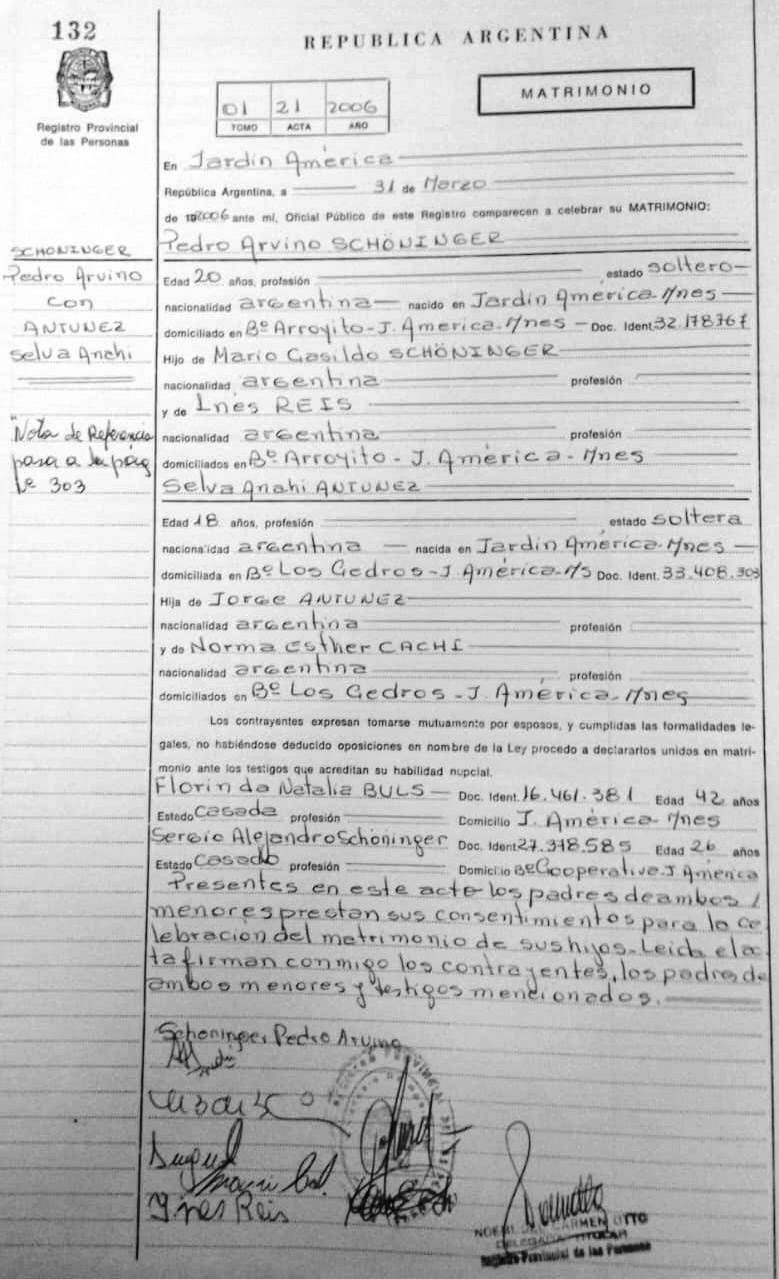 132
REPUBLICA ARGENTINA
Registro Provincial
de las Personas
01 21 2006
TOMO ACTA AÑO
MATRIMONIO
En Jardín América
República Argentina, a 31 de Marzo
de 192006 ante mí, Oficial Público de este Registro comparecen a celebrar su MATRIMONIO:
SCHONINGER
Pedro Arvino
con
ANTUNEZ
Selva Anahi
Nota de Referencia
pasa a la pág
Nº 303
Pedro Arvino SCHÖNINGER
Edad 20 años, profesión estado soltero
nacionalidad argentina nacido en Jardín América-Mnes
domiciliado en Bº Arroyito-J. America-Mnes Doc. Ident. 32.178.767
Hijo de Mario Casildo SCHÖNINGER
nacionalidad argentina profesión
y de Inés REIS
nacionalidad argentina profesión
domiciliados en Bº Arroyito - J. América - Mnes
Selva Anahi ANTUNEZ
Edad 18 años, profesión estado soltera
nacionalidad argentina nacida en Jardín América-Mnes
domiciliada en Bº Los Cedros - J. América-M/s Doc. Ident. 33.408.303
Hija de Jorge ANTUNEZ
nacionalidad argentina profesión
y de Norma Esther CACHI
nacionalidad argentina profesión
domiciliados en Bº Los Cedros - J. América - Mnes
Los contrayentes expresan tomarse mutuamente por esposos, y cumplidas las formalidades le-
gales, no habiéndose deducido oposiciones en nombre de la Ley procedo a declararlos unidos en matri-
monio ante los testigos que acreditan su habilidad nupcial.
Florinda Natalia BULS Doc. Ident. 16.461.381 Edad 42 años
Estado casada profesión Domicilio J. América-Mnes
Sergio Alejandro Schöninger Doc. Ident. 27.318.585 Edad 26 años
Estado casado profesión Domicilio Bº Cooperativa-J. América
Presentes en este acto los padres de ambos /
menores prestan sus consentimientos para la ce
lebracion del matrimonio de sus hijos. Leida el ac
ta firman conmigo los contrayentes, los padres de
ambos menores y testigos mencionados.
Schoninger Pedro Arvino
Ynes Reis
NOEMI DEL CARMEN OTTO
DELEGADA TITULAR
Registro Provincial de las Personas